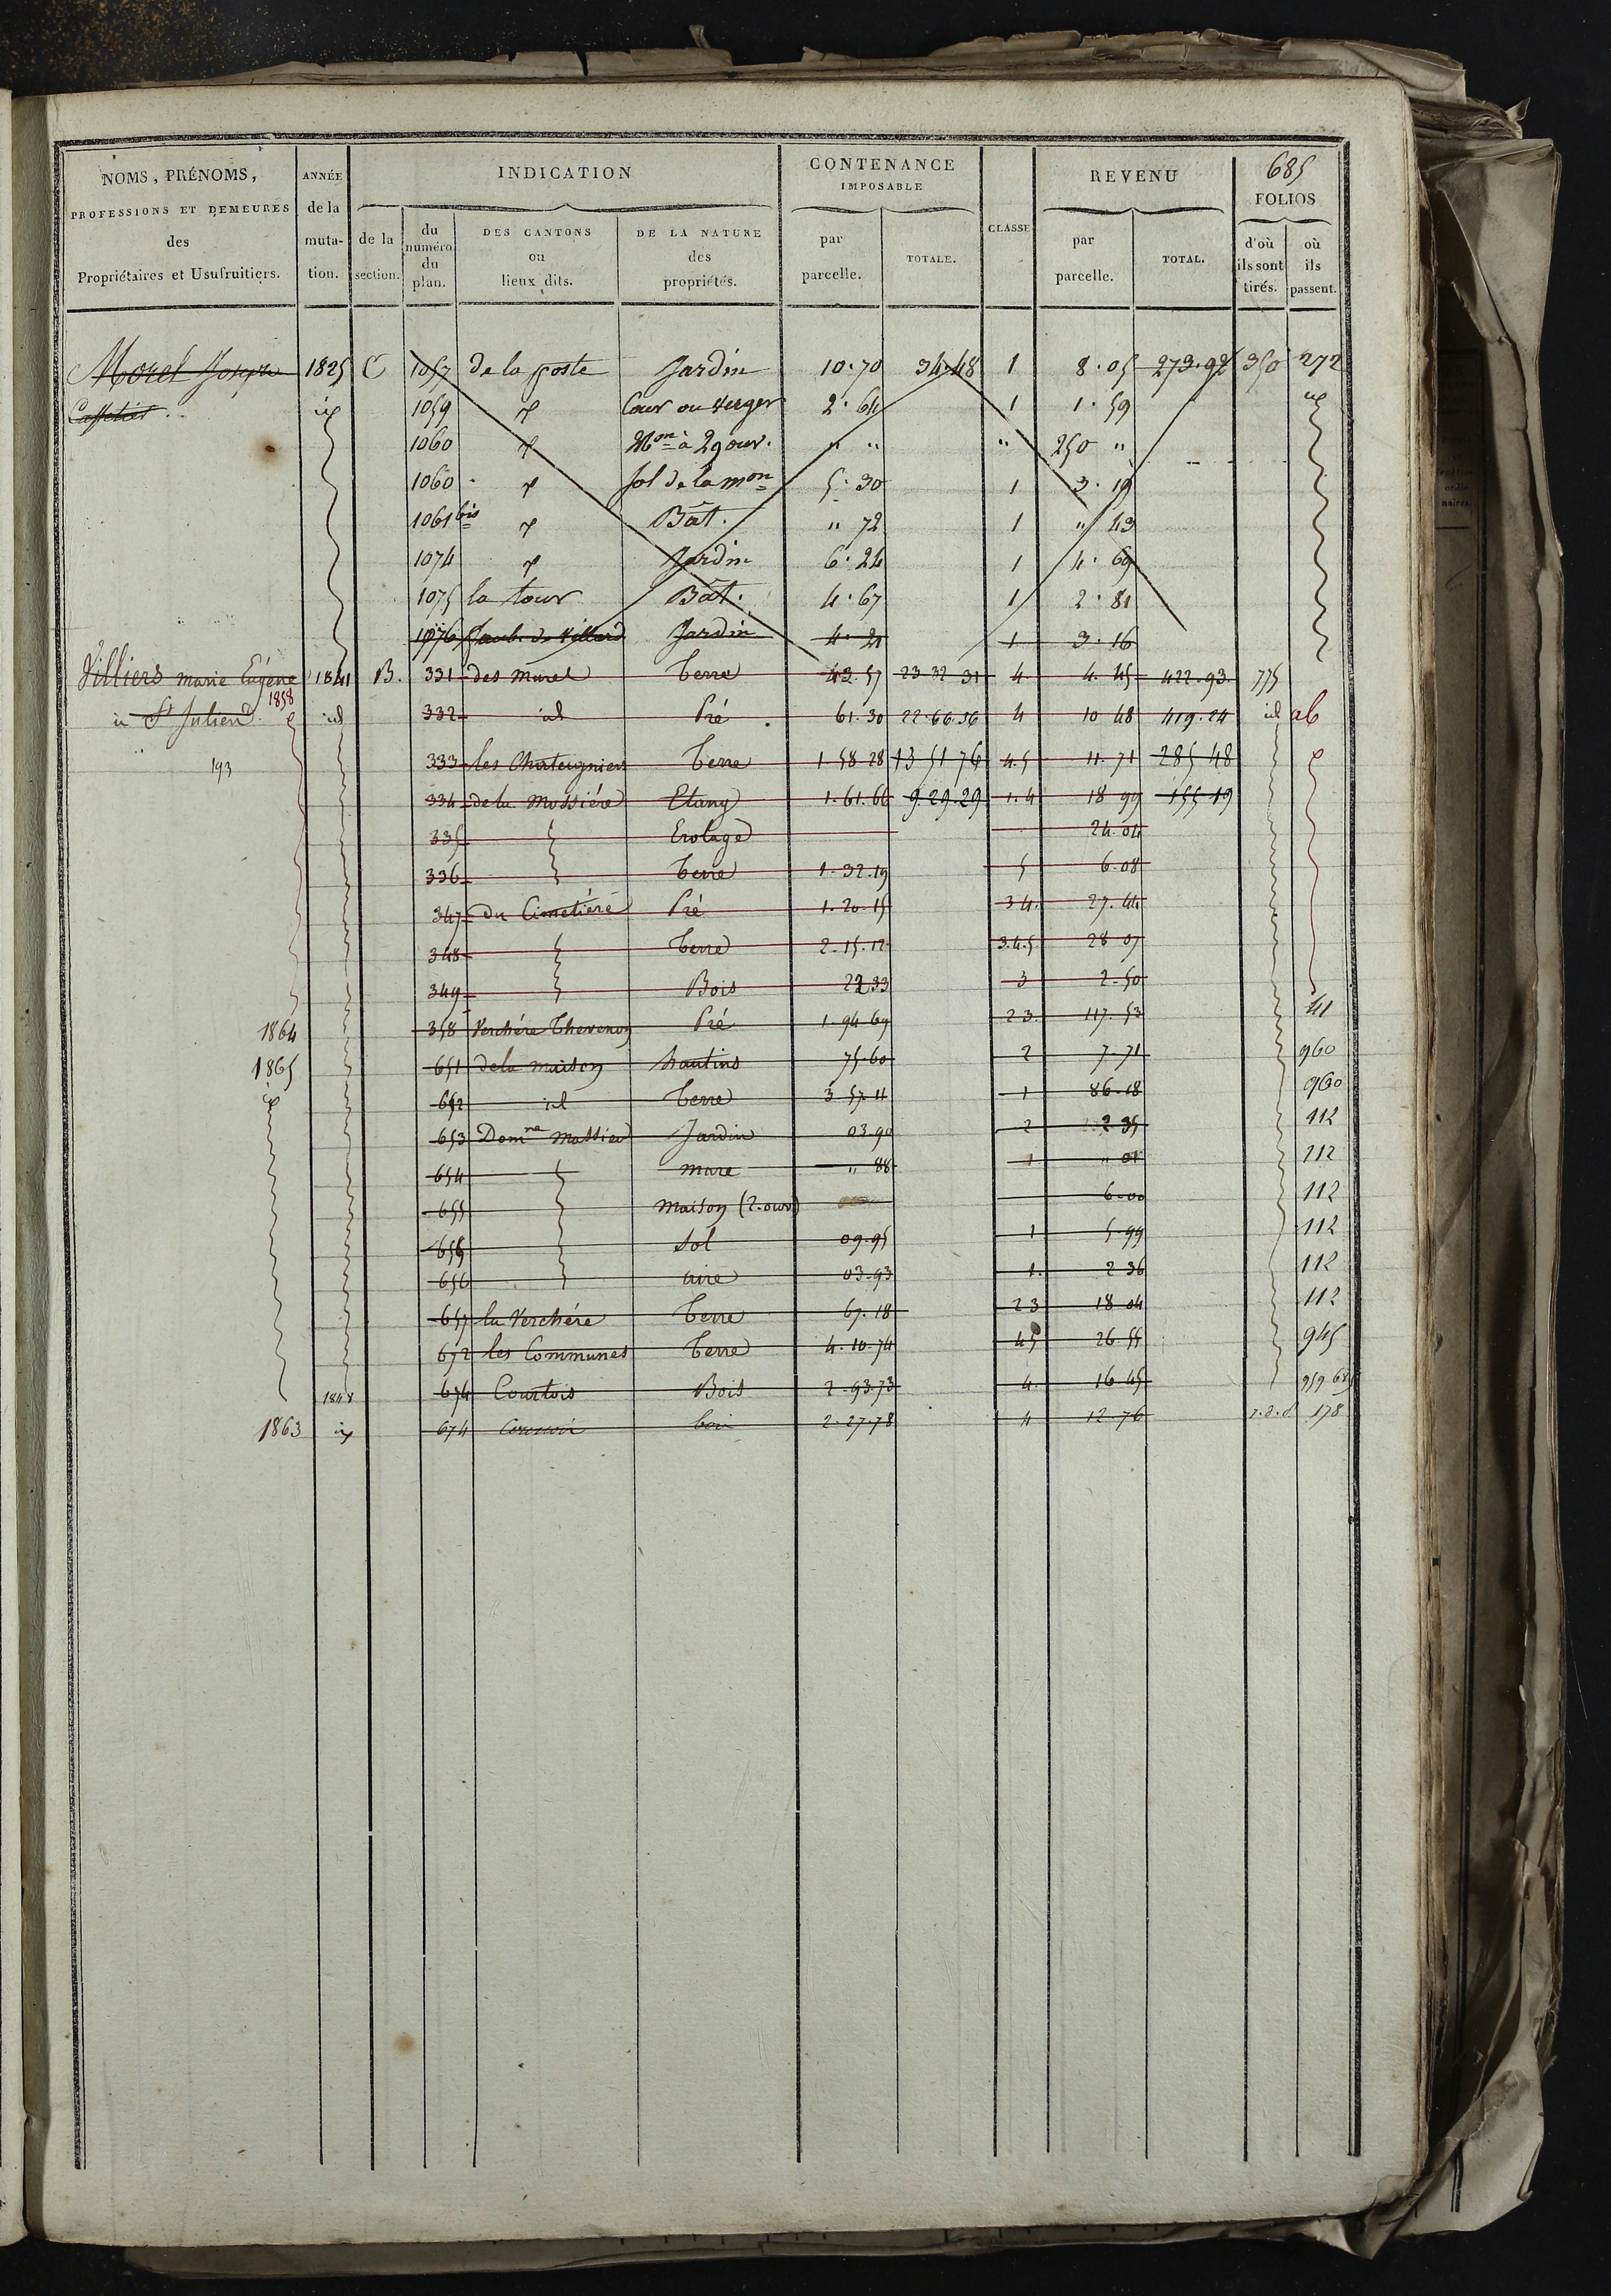 685
NOMS, PRÉNOMS, PROFESSIONS ET DEMEURES des Propriétaires et Usufruitiers.
ANNÉE de la muta-tion.
INDICATION
de la section.
du numéro du plan.
DES CANTONS ou lieux dits.
DE LA NATURE des propriétés.
CONTENANCE IMPOSABLE
par parcelle.
TOTALE.
CLASSE
REVENU
par parcelle.
TOTAL.
FOLIOS
d'où ils sont tirés.
où ils passent.
Morel Joseph 1825 C 1057 de la poste Jardin 10.70 34.48 1 8.05 273.92 350 272
1059 Cour ou verger 2.64 1 1.59
1060 Mon à 29 ouv. " " " 250 "
1060 Sol de la mon 5.30 1 3.19
1061 bis Bât. " 72 1 " 43
1074 Jardin 6.24 1 4.69
1075 la tour Bât. 4.67 1 2.81
1076 Jardin 4.21 1 3.16
Villiers marie Eugène 1841 B. 331 des murel Terre 43.57 23 32 31 4. 4.45 422.93. 775
1858
à St Julien id 332 id Pré 61.30 22.66.56 4 10 48 419.24 id ab
193 333 les Chateigniers Terre 1.58 28 13 51 76 4.5 11.71 285 48
334 de la Mossière Etang 1.61.66 9.29.29 1.4 18 99 155 19
335 Erolage 24.04
336 Terre 1.32.19 5 6.08
347 du Cimetière Pré 1.20.15 3 4. 27.44
348 Terre 2.15.12 3.4.5 28 07
349 Bois 22 33 3 2.50
1864 358 Verchère Thevenon Pré 1.94 69 2 3. 117.53 41
1865 651 de la maison hautins 75.60 2 7.71 960
652 id Terre 3 57.11 1 86.18 960
653 Domne Massieu Jardin 03.90 2 2 35 112
654 mare " 88 1 " 01 112
655 maison (2. ouv) 6.00 112
655 Sol 09.95 1 5.99 112
656 aire 03.93 1. 2 36 112
657 la Verchère Terre 67.18 2 3 18 04 112
672 les Communes Terre 4.10.74 4 5 26 55 945
1848 674 Courtois Bois 2.93.73 4. 16 45
1863 674 bois 2.27.78 4 12.76 178